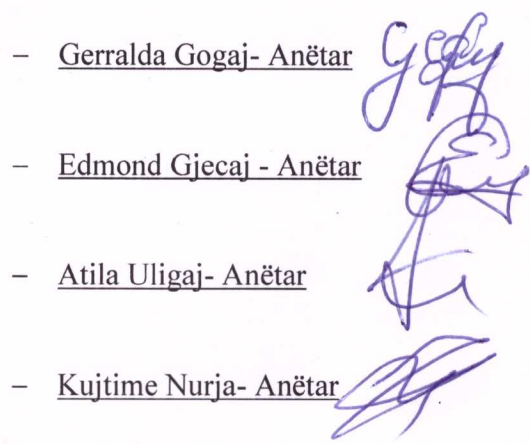 – Gerralda Gogaj- Anëtar
– Edmond Gjecaj - Anëtar
– Atila Uligaj- Anëtar
– Kujtime Nurja- Anëtar